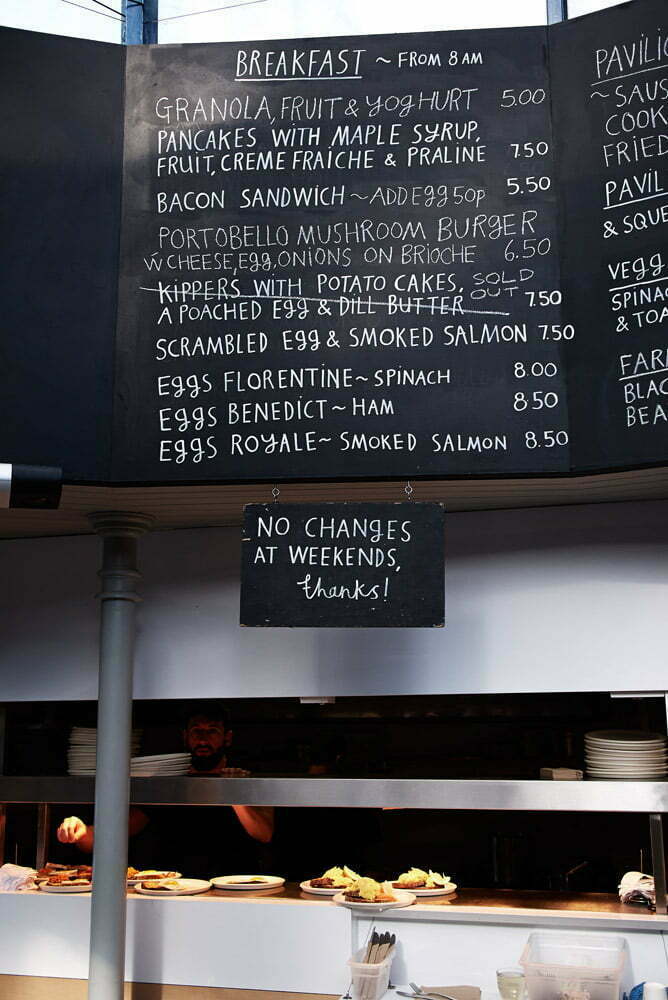 BREAKFAST ~ FROM 8AM
GRANOLA, FRUIT & YOGHURT 5.00
PANCAKES WITH MAPLE SYRUP,
FRUIT, CREME FRAICHE & PRALINE 7.50
BACON SANDWICH ~ ADD EGG 50p 5.50
PORTOBELLO MUSHROOM BURGER
W CHEESE, EGG, ONIONS ON BRIOCHE 6.50
KIPPERS WITH POTATO CAKES, SOLD OUT
A POACHED EGG & DILL BUTTER 7.50
SCRAMBLED EGG & SMOKED SALMON 7.50
EGGS FLORENTINE ~ SPINACH 8.00
EGGS BENEDICT ~ HAM 8.50
EGGS ROYALE ~ SMOKED SALMON 8.50
~ 
FRIED
& SQUE
VEGG
SPINA
& TOA
FAR
BLAC
BEA
NO CHANGES
AT WEEKENDS,
thanks!